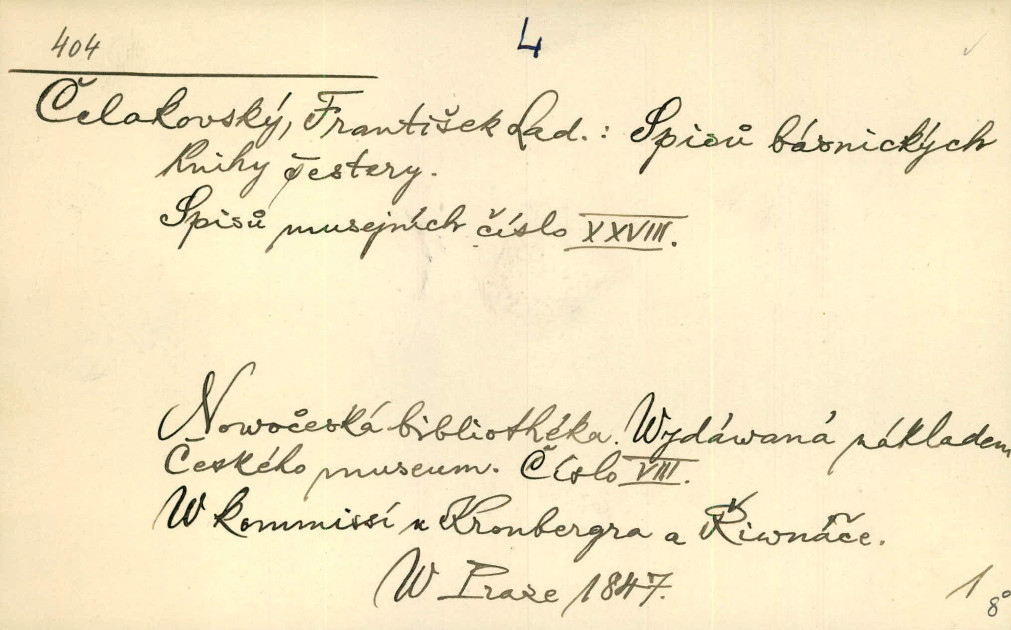 404
4
Čelakovský, František Lad.: Spisů básnických
knihy čestery.
Spisů musejních číslo XXVIII.
Nowočeská bibliothéka. Wydáwaná nákladem
Českého museum. Číslo VIII.
W kommissí u Kronbergra a Řiwnáče.
W Praze 1847.
1
8°